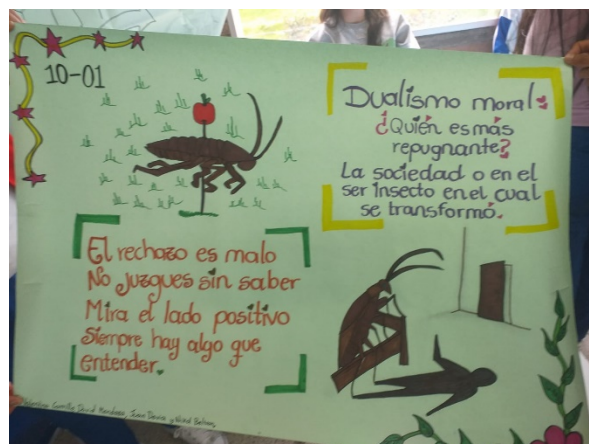 10-01
Dualismo moral:
¿Quién es más
repugnante?
La sociedad o en el
ser insecto en el cual
se transformó.
El rechazo es malo
No juzgues sin saber
Mira el lado positivo
Siempre hay algo que
entender.
Camilla David Mendoza, Juan David y